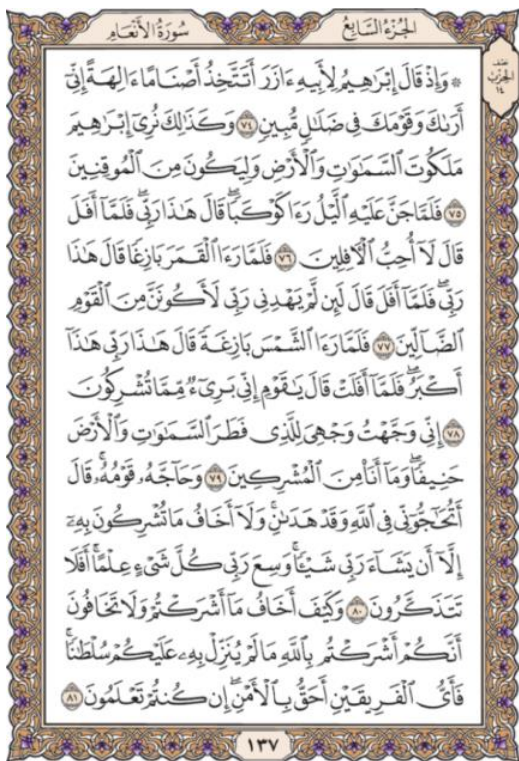 سُورَةُ الأَنْعَام
الجُزْءُ السَّابِعُ
نصف
الحِزْب
١٤
۞ وَإِذْ قَالَ إِبْرَٰهِيمُ لِأَبِيهِ ءَازَرَ أَتَتَّخِذُ أَصْنَامًا ءَالِهَةً إِنِّىٓ
أَرَىٰكَ وَقَوْمَكَ فِى ضَلَٰلٍ مُّبِينٍ ٧٤ وَكَذَٰلِكَ نُرِىٓ إِبْرَٰهِيمَ
مَلَكُوتَ ٱلسَّمَٰوَٰتِ وَٱلْأَرْضِ وَلِيَكُونَ مِنَ ٱلْمُوقِنِينَ
٧٥ فَلَمَّا جَنَّ عَلَيْهِ ٱلَّيْلُ رَءَا كَوْكَبًا ۖ قَالَ هَٰذَا رَبِّى ۖ فَلَمَّآ أَفَلَ
قَالَ لَآ أُحِبُّ ٱلْءَافِلِينَ ٧٦ فَلَمَّا رَءَا ٱلْقَمَرَ بَازِغًا قَالَ هَٰذَا
رَبِّى ۖ فَلَمَّآ أَفَلَ قَالَ لَئِن لَّمْ يَهْدِنِى رَبِّى لَأَكُونَنَّ مِنَ ٱلْقَوْمِ
ٱلضَّآلِّينَ ٧٧ فَلَمَّا رَءَا ٱلشَّمْسَ بَازِغَةً قَالَ هَٰذَا رَبِّى هَٰذَآ
أَكْبَرُ ۖ فَلَمَّآ أَفَلَتْ قَالَ يَٰقَوْمِ إِنِّى بَرِىٓءٌ مِّمَّا تُشْرِكُونَ
٧٨ إِنِّى وَجَّهْتُ وَجْهِىَ لِلَّذِى فَطَرَ ٱلسَّمَٰوَٰتِ وَٱلْأَرْضَ
حَنِيفًا ۖ وَمَآ أَنَا۠ مِنَ ٱلْمُشْرِكِينَ ٧٩ وَحَآجَّهُۥ قَوْمُهُۥ ۚ قَالَ
أَتُحَٰٓجُّوٓنِّى فِى ٱللَّهِ وَقَدْ هَدَىٰنِ ۚ وَلَآ أَخَافُ مَا تُشْرِكُونَ بِهِۦٓ
إِلَّآ أَن يَشَآءَ رَبِّى شَيْـًٔا ۗ وَسِعَ رَبِّى كُلَّ شَىْءٍ عِلْمًا ۗ أَفَلَا
تَتَذَكَّرُونَ ٨٠ وَكَيْفَ أَخَافُ مَآ أَشْرَكْتُمْ وَلَا تَخَافُونَ
أَنَّكُمْ أَشْرَكْتُم بِٱللَّهِ مَا لَمْ يُنَزِّلْ بِهِۦ عَلَيْكُمْ سُلْطَٰنًا ۚ
فَأَىُّ ٱلْفَرِيقَيْنِ أَحَقُّ بِٱلْأَمْنِ ۖ إِن كُنتُمْ تَعْلَمُونَ ٨١
١٣٧